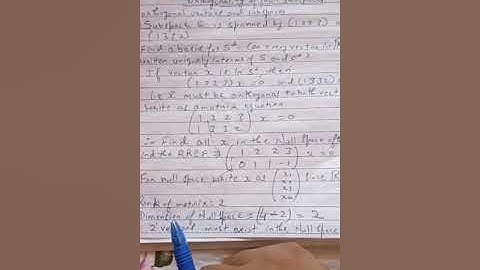 Orthogonality of four subspaces
orthogonal vectors and subspaces
Subspace S is spanned by (1 2 2 3) and
(1 3 3 2)
Find a basis for S⊥ Can every vector in
written uniquely in terms of S and S⊥?
If vector x is in S⊥, then
(1 2 2 3) x = 0 and (1 3 3 2) x
i.e x must be orthogonal to both vect
write as a matrix equation
(1 2 2 3
1 3 3 2) x = 0
∴ Find all x in the Null space of
and the RREF ⇒ (1 2 2 3
0 1 1 -1) x = 0
For null space write x as (x1
x2
x3
x4) since
Rank of matrix = 2
Dimension of Null space = (4-2) = 2
2 vectors must exist in the Null space